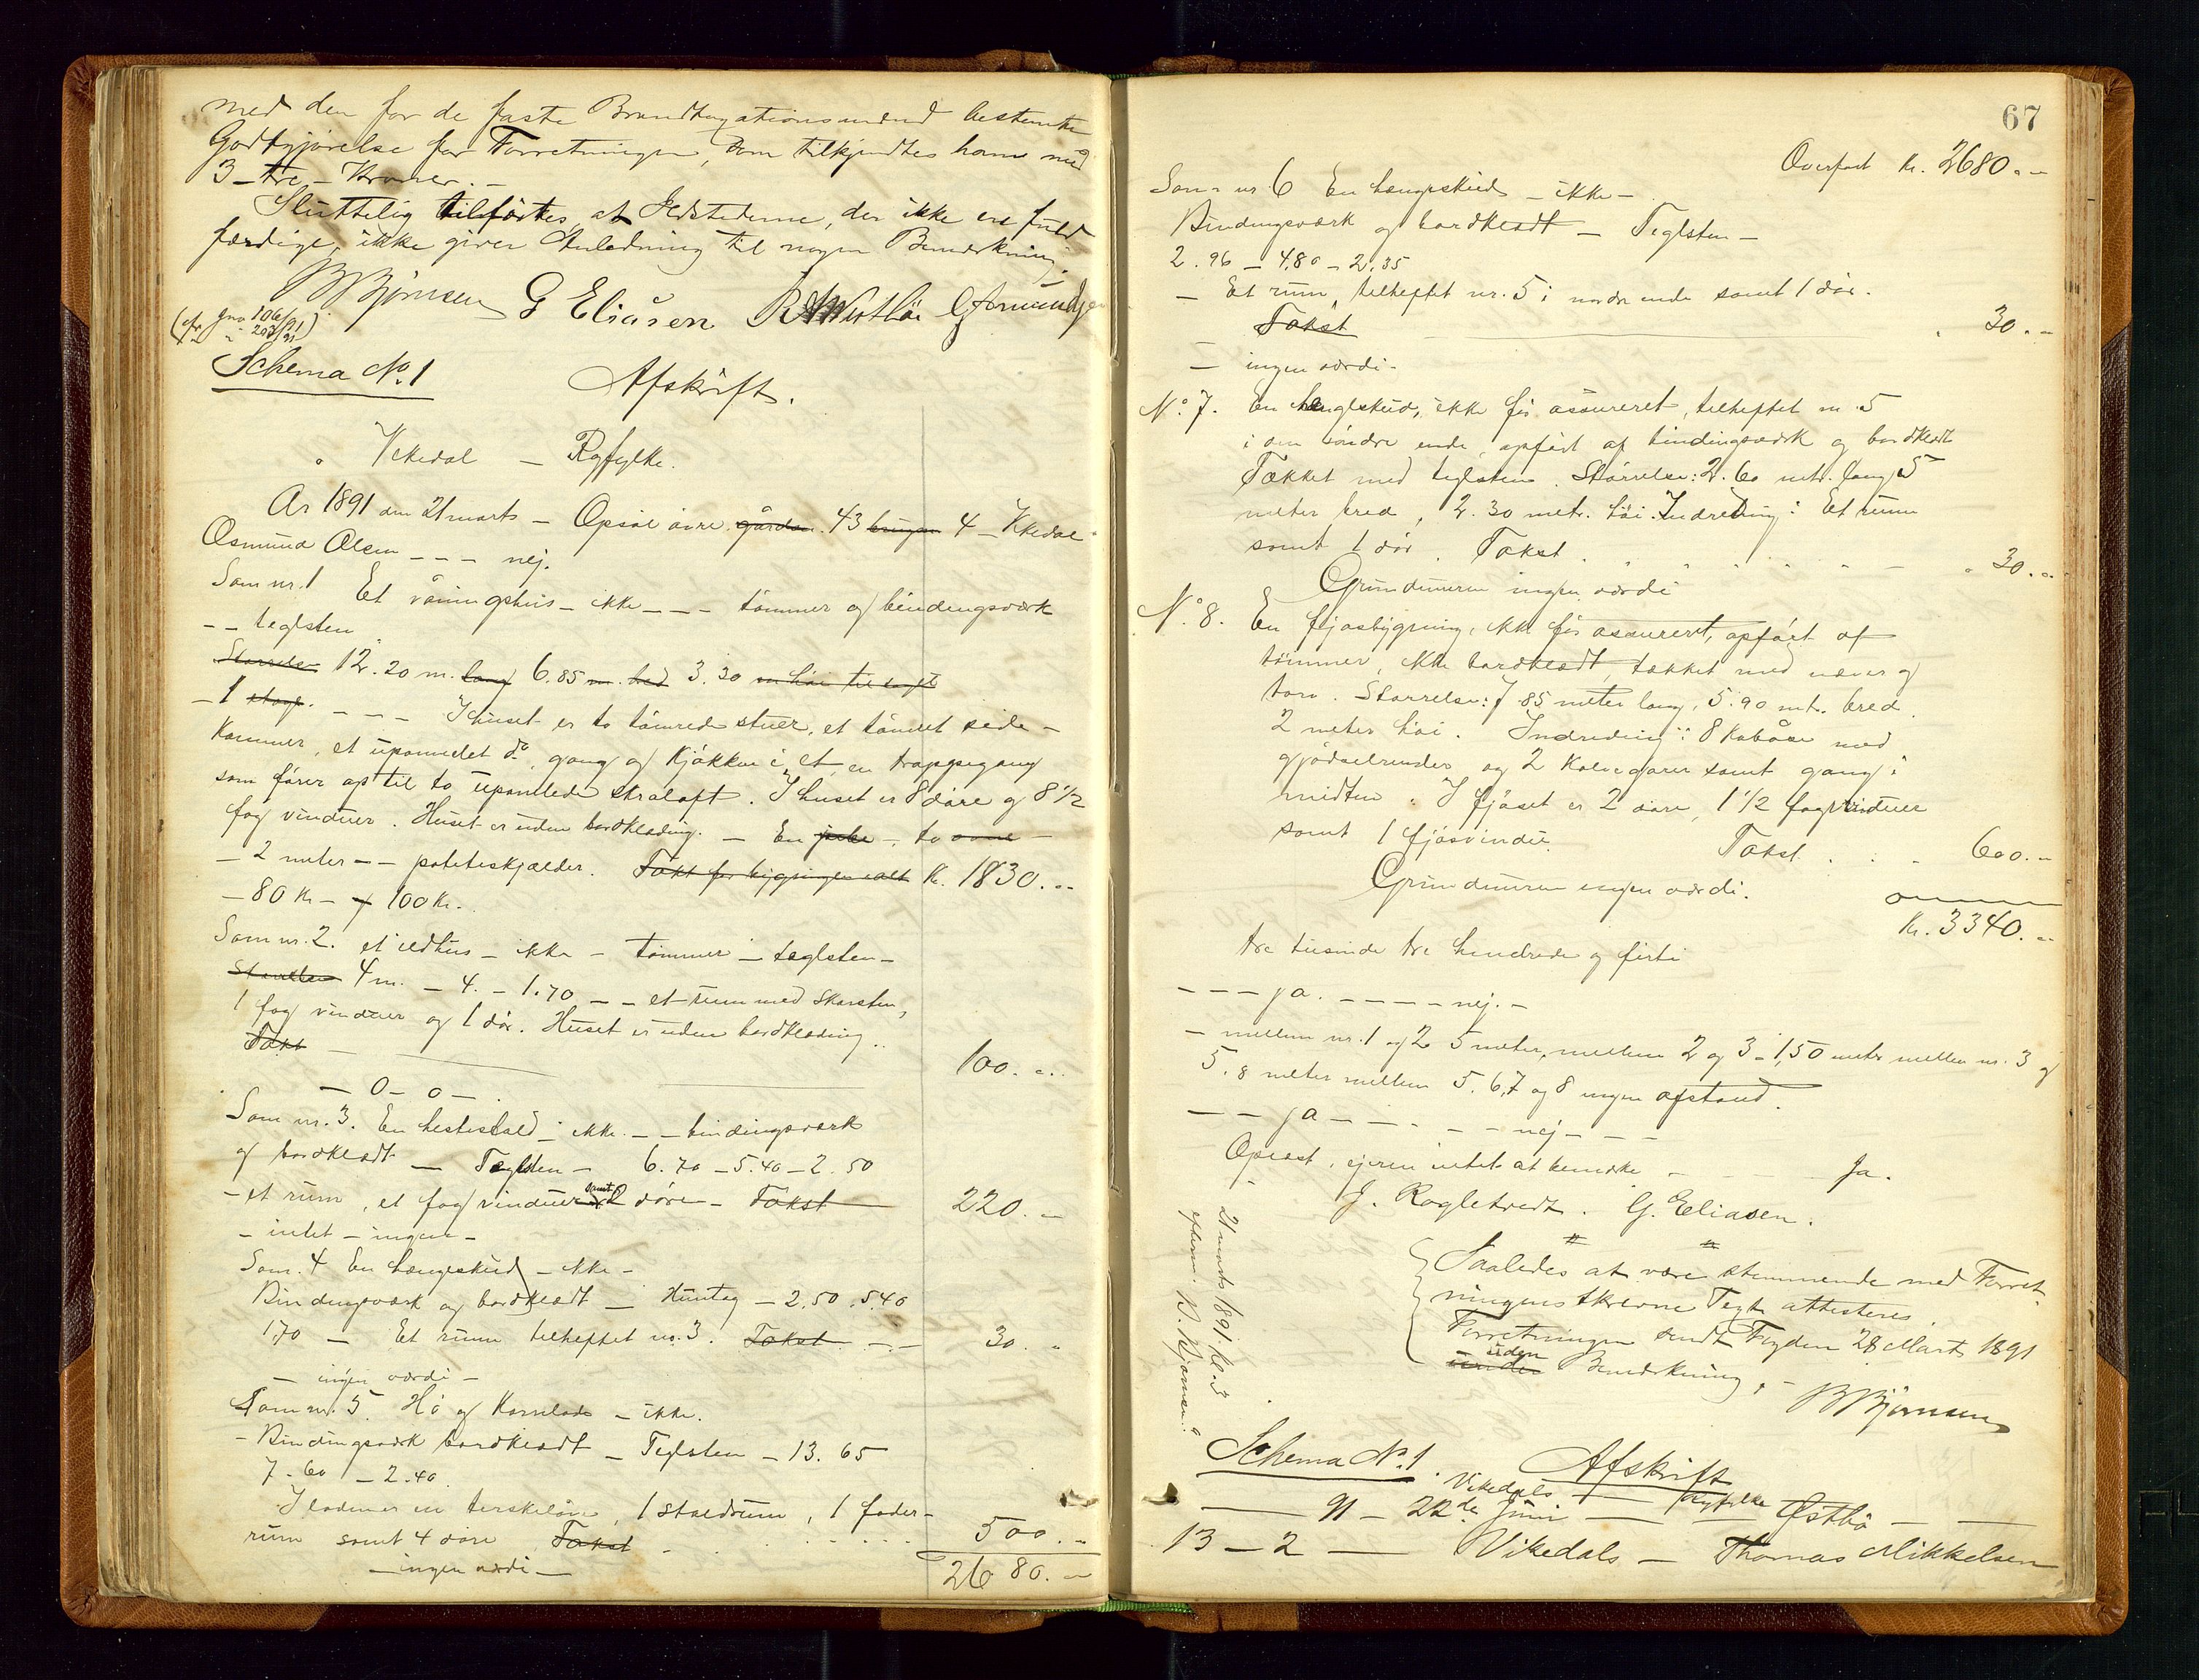 med den for de faste Brandtaxationsmænd bestemte
Godtgjörelse for Forretningen, som tilkjendtes ham med
3 - tre - Kroner. -
Sluttelig tilförtes at Ildstederne, der ikke ere fuld
færdige, ikke giver Anledning til nogen Bemærkning.
B Björnsen G Eliåsen
(cfr gno 106/91
" 202/91)
Schema No. 1 Afskrift.
Vikedal - Ryfylke.
År 1891 den 21 marts - Opsal övre gården 43 brugen 4 - Vikedal
Osmund Olsen - - - nej.
Som nr. 1 Et våningshus - ikke - - - tömmer og bindingsværk
- - teglsten
Størrelse 12.20 m. lang 6.85 m. bred 3.30 m höi til loft
- 1 etage. - - - I huset er to tömrede stuer, et tömret side-
kammer, et upanelet do, gang og Kjökken i et, en trappegang
som förer op til to upanelede stralöft. I huset er 8 döre og 8 1/2
fag vinduer. Huset er uden bordklædning. - En pibe - to ovne -
- 2 meter - - poteteskjælder. Takst for bygningen ialt Kr. 1830. -
- 80 Kr - og 100 Kr. -
Som nr. 2. et ildhus - ikke - tömmer - teglsten -
Størrelse 4 m. - 4. - 1.70 - - et rum med skorsten,
1 fag vinduer og 1 dör. Huset er uden bordklædning.
Takst - 100. -
- 0 - 0 -
Som nr. 3. En hestestald - ikke - - bindingsværk
og bordklædt - Teglsten - 6.70 - 5.40 - 2.50
- et rum, et fag vinduer samt 2 döre - Takst 220. -
- intet - ingen -
Som. 4 En hængeskud - ikke -
Bindingsværk og bordklædt - Huntag - 2.50 . 5.40
1.70 - Et rum tilheftet nr. 3. Takst - - 30. -
- ingen værdi -
Som nr. 5. Hö og Kornlade - ikke.
- Bindingsværk bordklædt - Teglsten - 13.65
7.60 - 2.40
I laden er en terskelöve, 1 staldrum, 1 foder-
rum samt 4 döre Takst 500. -
- ingen værdi - 2680. -
67
Overfört Kr. 2680. -
Som nr. 6 En hængeskud - ikke -
Bindingsværk og bordklædt - Teglsten -
2.96 - 4.80 - 2.35
- Et rum, tilheftet nr. 5 i nordre ende samt 1 dör.
Takst 30. -
- ingen værdi -
No. 7. En hængeskud, ikke för assureret, tilheftet nr. 5
i den söndre ende, opfört af bindingsværk og bordklædt
Tækket med teglsten. Störrelse: 2.60 mtr. lang, 5
meter bred, 2.30 metr. höi. Indredning: Et rum
samt 1 dör. Takst 30. -
Grundmuren ingen værdi
No. 8. En fjosbygning, ikke för assureret, opfört af
tömmer, ikke bordklædt, tækket med næver og
torv. Störrelse: 7.85 meter lang, 5.90 mt. bred
2 meter höi. Indredning: 8 Kobåse med
gjödselrender og 2 Kalvegarer samt gang i
midten. I fjöset er 2 döre, 1 1/2 fag vinduer
samt 1 fjösvindu. Takst . . . 600. -
Grundmuren ingen værdi.
Kr. 3340. -
tre tusinde tre hundrede og firti
- - - ja. - - - - nej. -
- mellem nr. 1 og 2 5 meter, mellem 2 og 3 - 1,50 meter mellem nr. 3 og
5. 8 meter mellem 5. 6, 7 og 8 ingen afstand.
- - ja - - - - - nej - - -
Oplæst, ejeren intet at bemærke - Ja.
J. Rogletvedt. G. Eliasen.
21 marts 1891 Kl. 3
efterm. B. Björnsen.
Saaledes at være stemmende med Forret-
ningens skrevne Text attesteres.
Forretningen sendt Fogden 28 Marts 1891
under uden Bemærkning. - B Björnsen
Schema No. 1 Afskrift
Vikedals - Ryfylke
- 91 - 22de Juni - Østbö - -
13 - 2 - Vikedals - Thomas Mikkelsen